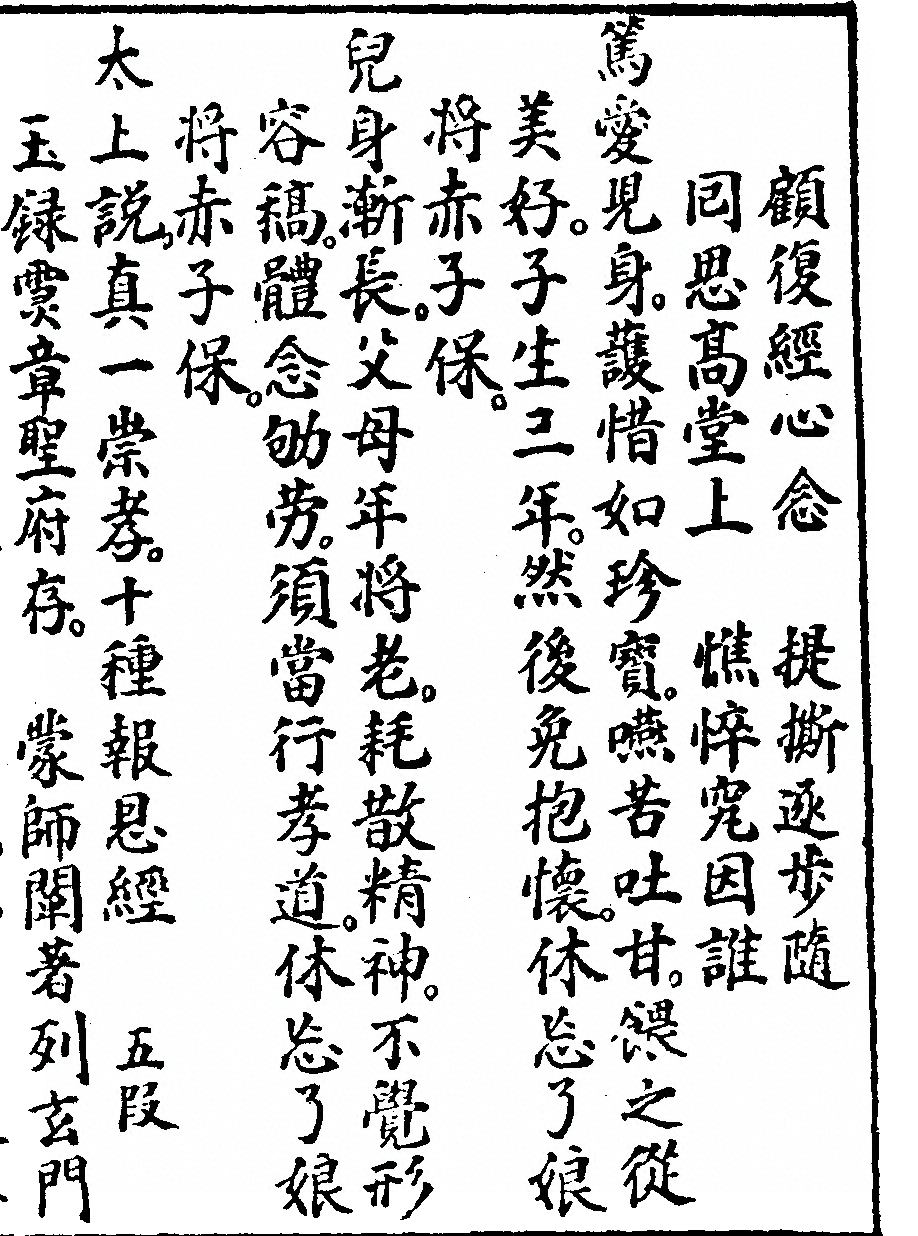 顧復經心念　提撕逐步隨
囘思髙堂上　憔悴究因誰
篤愛児身。護惜如珍寶。嚥苦吐甘。餵之從
美好。子生三年。然後免抱懷。休忘了娘
将赤子保。
兒身漸長。父母年将老。耗散精神。不覺形
容稿。體念劬劳。須當行孝道。休忘了娘
将赤子保。
太上説真一崇孝。十種報恩經　五段
玉録霛章聖府存。　蒙師闡著列玄門